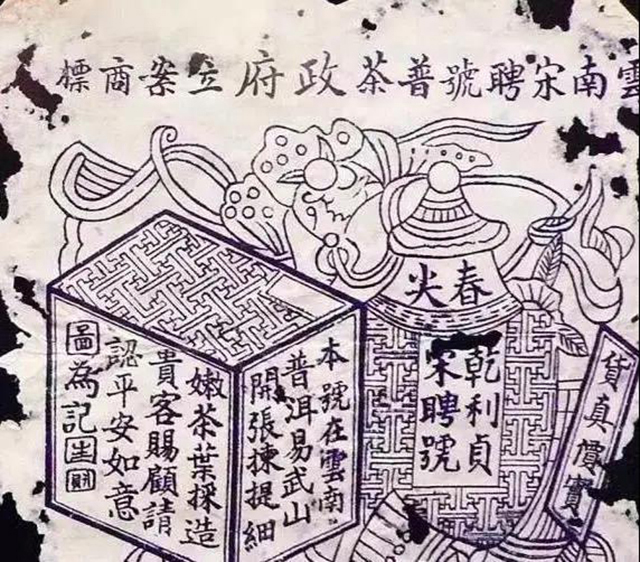 雲南宋聘號普茶政府立案商標
春尖
乾利貞
宋聘號
貨真價實
本號在雲南
普洱易武山
開張揀提細
嫩茶葉採造
貴客賜顧請
認平安如意
圖為記